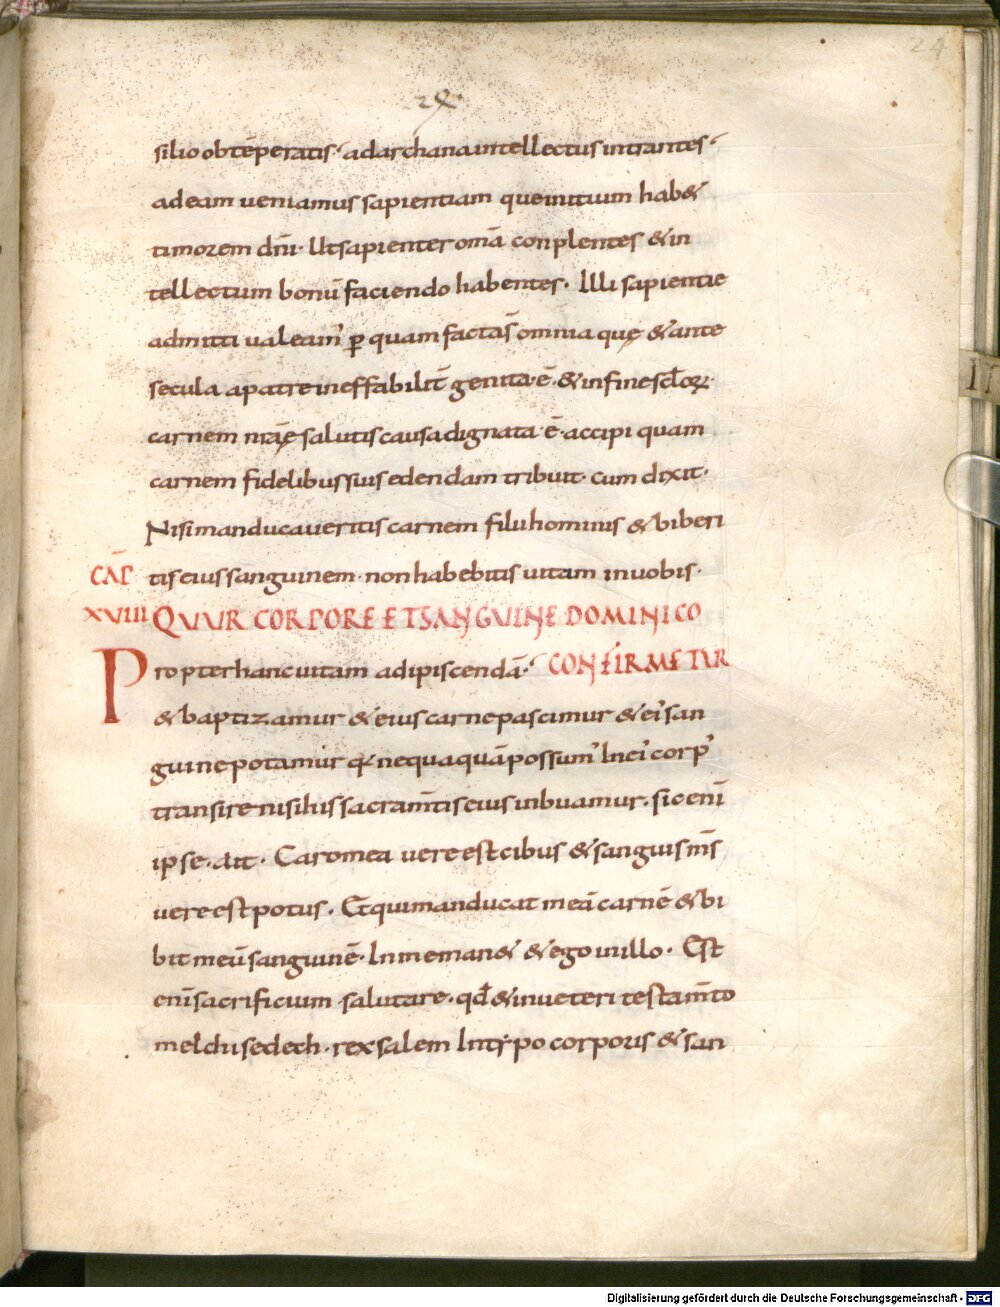 24
silio obtēperatis· ad archana intellectus intrantes·
ad eam ueniamus sapientiam que initium hab&
timorem dn̄i· Ut sapienter omā conplentes & in
tellectum bonū faciendo habentes· Illi sapientie
admitti ualeam' ꝑ quam facta s̄ omnia quę & ante
secula a patre ineffabilit̄ genita·ē·& in fine scl̄oꝝ·
carnem nr̄āę salutis causa dignata·ē·accipi quam
carnem fidelibus suis edendam tribuit· cum dixit·
Nisi manducaueritis carnem filii hominis & biberi
CAP̄ tis eius sanguinem· non habebitis uitam in uobis·
XVIIII QUUR CORPORE ET SANGUINE DOMINICO
Propter hanc uitam adipiscendā· CONFIRMETUR
& baptizamur & eius carne pascimur & ei' san
guine potamur qꝛ nequaquā possum' In ei' corp'
transire nisi his sacram̄tis eius inbuamur· sic enī
ipse·ait· Caro mea uere est cibus & sanguis m̄s
uere est potus· Et qui manducat meā carnē & bi
bit meū sanguinē· In me man& & ego in illo· Est
enī sacrificium salutare· qd̄ & in ueteri testam̄to
melchisedech·rex salem In tẏpo corporis & san
Digitalisierung gefördert durch die Deutsche Forschungsgemeinschaft - DFG